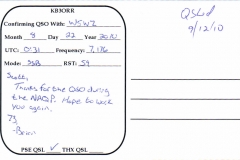 KB3ORR
QSL'd
9/12/10
Confirming QSO With: W5WZ
Month 8 Day 22 Year 2010
UTC: 0131 Frequency: 7,186
Mode: SSB RST: 59
Scott,
Thanks for the QSO during
the NAQP. Hope to work
you again.
73
PSE QSL ✓ THX QSL